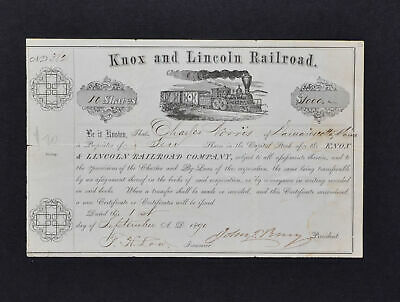 Knox and Lincoln Railroad.
10 Shares
Be it Known, That Charles of
is Proprietor of Ten Shares in the Capital Stock of the KNOX
& LINCOLN RAILROAD COMPANY, subject to all assessments thereon, and to
the provisions of the Charter and By-Laws of the corporation, the same being transferrable
by an assignment thereof in the books of said corporation, or by conveyance in writing recorded
in said books. When a transfer shall be made or recorded, and this Certificate surrendered
a new Certificate or Certificates will be issued.
Dated this 1st
day of September A.D. 1871
Treasurer
President